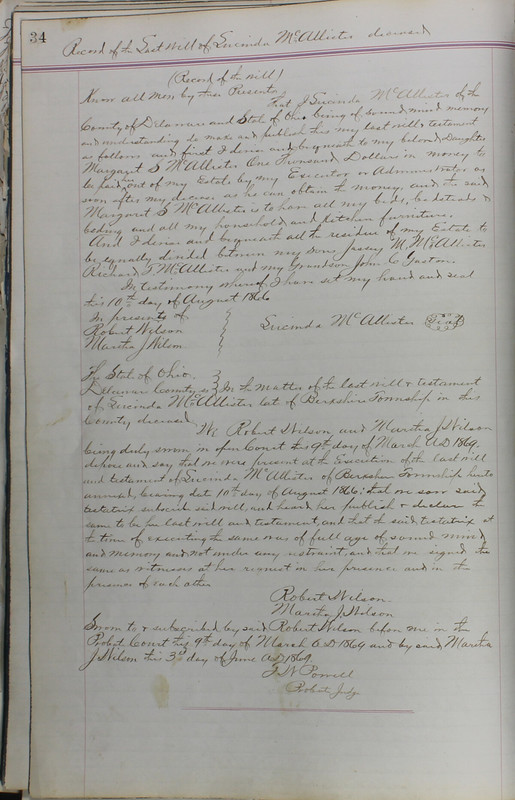 34
Record of the Last Will of Lucinda McAllister deceased
(Record of the will)
Know all Men by these Presents
That I Lucinda McAllister of the
County of Delaware and State of Ohio being of sound mind memory
and understanding do make and publish this my last will & testament
as follows and first I devise and bequeath to my beloved Daughter
Margaret S McAllister One Thousand Dollars in money to
be paid her out of my Estate by my Executor or Administrator as
soon after my decease as he can obtain the money, and the said
Margaret S McAllister is to have all my beds, bedsteads &
beding and all my household and kitchen furniture.
And I devise and bequeath all the residue of my Estate to
be equally divided between my Sons M. McAllister
Richard T McAllister and my grandson John C Gaston.
In testimony whereof I have set my hand and seal
this 10th day of August 1866
In presents of
Robert Wilson
Martha J Wilson
Lucinda McAllister Seal
The State of Ohio
Delaware County ss In the matter of the last will & testament
of Lucinda McAllister late of Berkshire Township in this
County deceased
We Robert Wilson and Martha J Wilson
being duly sworn in open Court this 9th day of March AD 1869.
depose and say that we were present at the Execution of the last will
and testament of Lucinda McAllister of Berkshire Township hereto
annexed, bearing date 10th day of August 1866; that we saw said
testatrix subscribe said will, and heard her publish & declare the
same to be her last will and testament, and that the said testatrix at
the time of executing the same was of full age of sound mind
and memory and not under any restraint, and that we signed the
same as witnesses at her request in her presence and in the
presence of each other
Robert Wilson
Martha J Wilson
Sworn to & subscribed by said Robert Wilson before me in the
Probate Court this 9th day of March AD 1869 and by said Martha
J Wilson this 3d day of June AD 1869.
Powell
Probate Judge